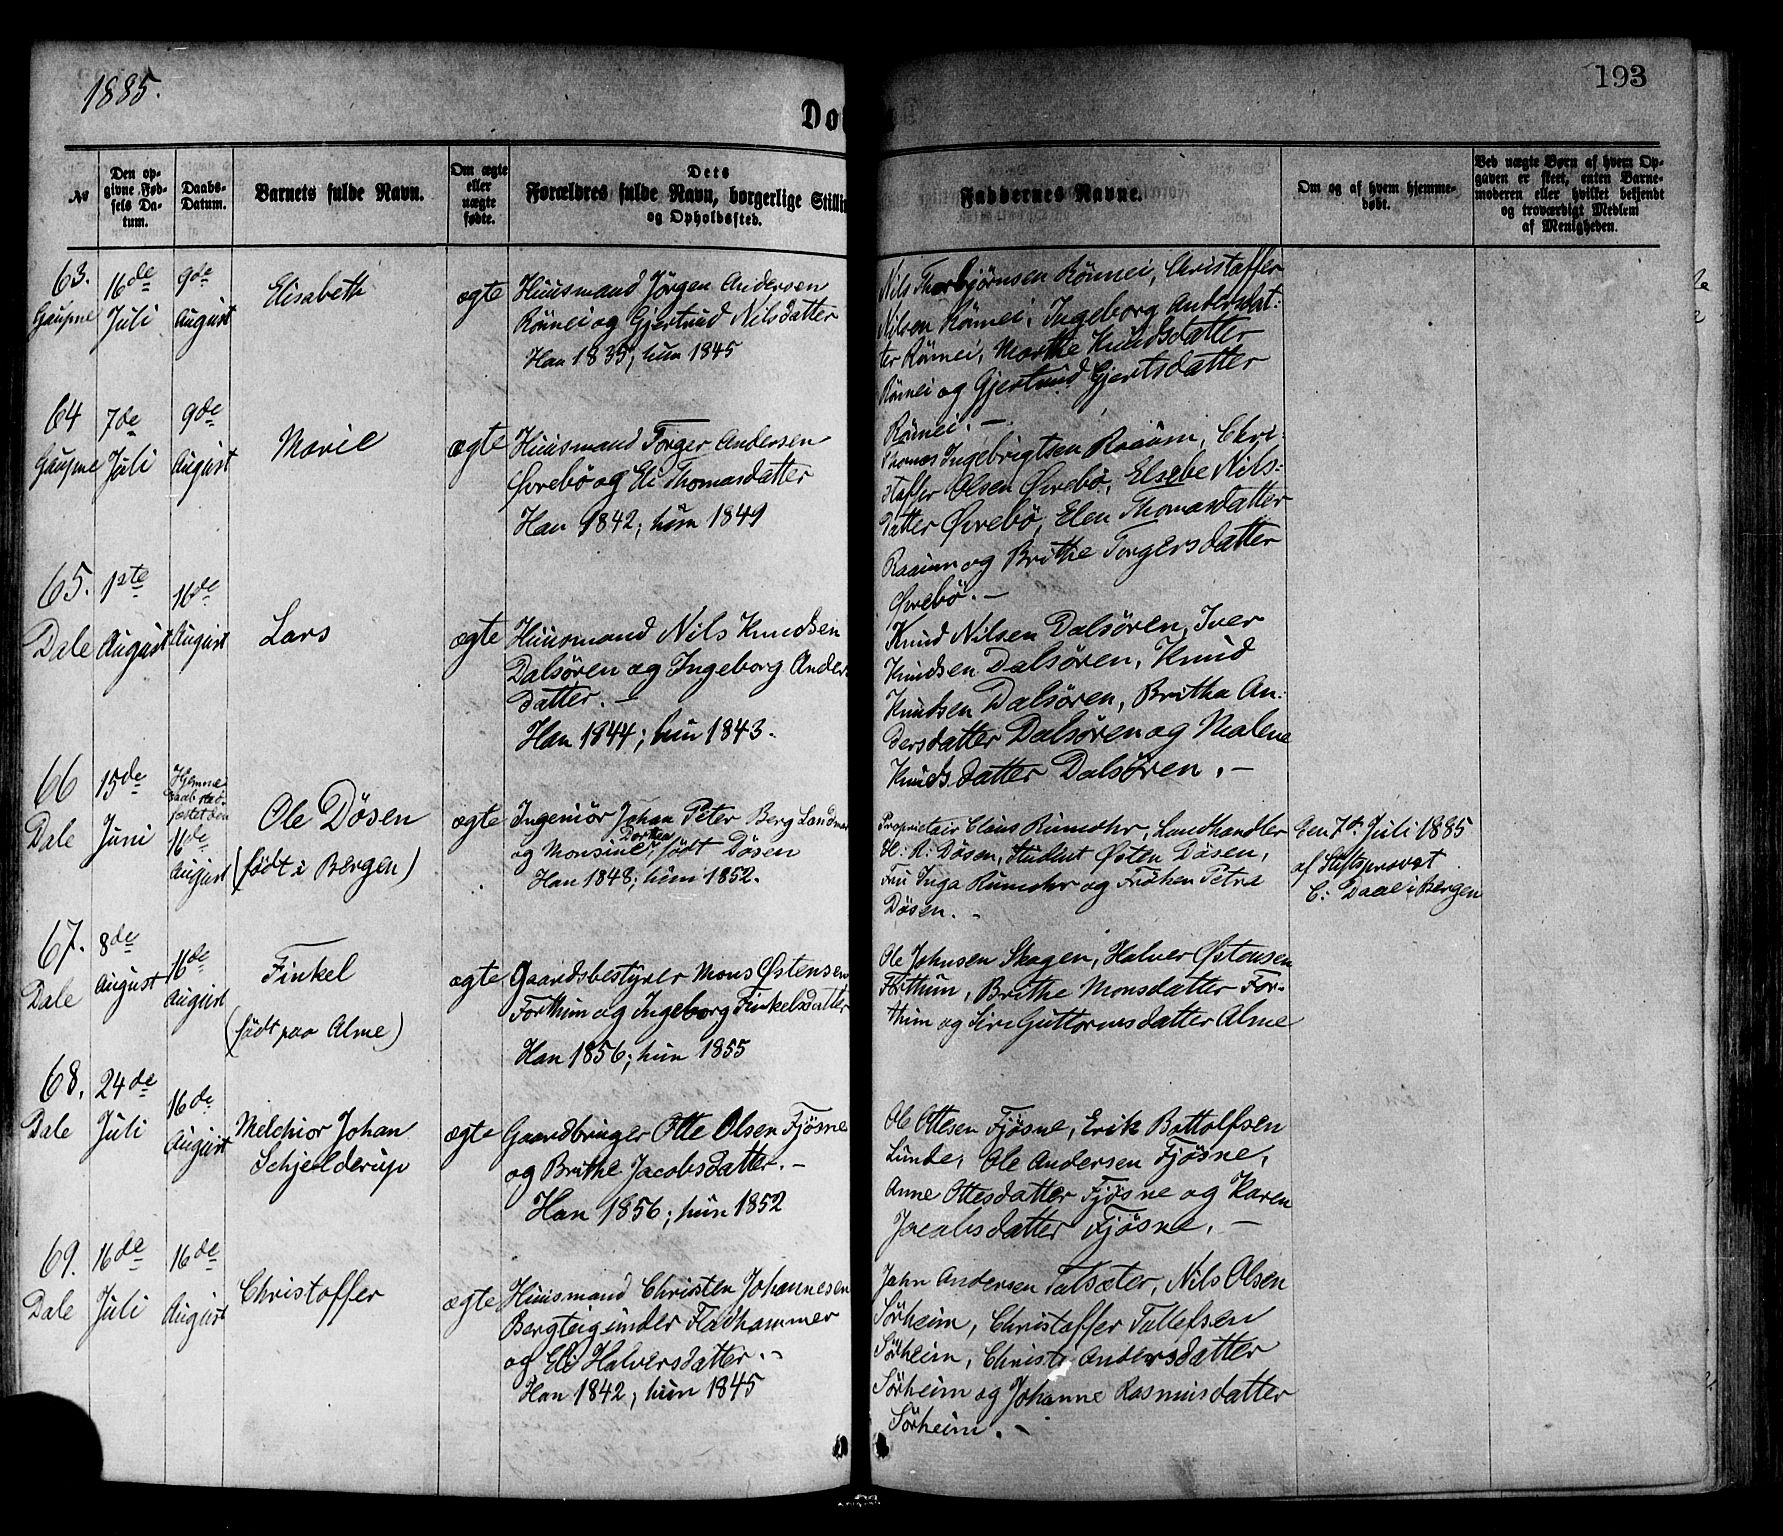 1885.
193
Dø
№
Den op-
givne Fød-
sels Da-
tum.
Daabs-
Datum.
Barnets fulde Navn.
Om ægte
eller
uægte
fødte.
Dets
Forældres fulde Navn, borgerlige Stilli
og Opholdssted.
Faddernes Navne.
Om og af hvem hjemme-
døbt.
Ved uægte Børn af hvem Op-
gaven er skeet, enten Barne-
moderen eller hvilket bekjendt
og troværdigt Medlem
af Menigheden.
63.
Gaupne
16de
Juli
9de
August
Elisabeth
ægte
Huusmand Jörgen Andersen
Rönnei og Gjertrud Nilsdatter
Han 1835; hun 1845
Nils Thorbjørnsen Rönnei, Christaffer
Nilsen Rönnei, Ingeborg Andersdat:
ter Rönnei, Marthe Knudsdatter
Rönnei og Gjertrud Gjertsdatter
Rönnei. —
64
Gaupne
7de
Juli
9de
August
Marie
ægte
Huusmand Torger Andersen
Øvrebö og Eli Thomasdatter
Han 1842; hun 1849
Thomas Ingebrigtsen Raaum, Chri:
staffer Olsen Øvrebö, Elsebe Nils:
datter Øvrebö, Elen Thomasdatter
Raaum og Brithe Torgersdatter
Øvrebö. —
65.
Dale
1ste
August
16de
August
Lars
ægte
Huusmand Nils Knudsen
Dalsören og Ingeborg Anders
datter. —
Han 1844; hun 1843.
Knud Nilsen Dalsören, Iver
Knudsen Dalsören, Knud
Knudsen Dalsören, Britha An:
dersdatter Dalsören og Malene
Knudsdatter Dalsören. —
66
Dale
15de
Juni
Hjemme
daab stad-
fæstet den
16de
August
Ole Dösen
(født i Bergen)
ægte
Ingeniör Johan Peter Berg Landmar
Dorthea
og Monsine, født Dösen
Han 1848; hun 1852.
Proprietair Claus Rumohr, Landhandler
H: R: Dösen, Student Østen Dösen,
Fru Inga Rumohr og Frøken Petra
Dösen. —
den 7de Juli 1885
af Stiftsprovst
C: Daae i Bergen
67.
Dale
8de
August
16de
August
Finkel
(født paa Alme)
ægte
Gaardsbestyrer Mons Østensen
Forthun og Ingeborg Finkelsdatter
Han 1856; hun 1855
Ole Johnsen Skagen, Halvor Østensen
Forthun, Brithe Monsdatter For-
thun og Siri Guttormsdatter Alme
68.
Dale
24de
Juli
16de
August
Melchior Johan
Schjelderup
ægte
Gaardbruger Otte Olsen Fjösne
og Brithe Jacobsdatter. —
Han 1856; hun 1852
Ole Ottesen Fjösne, Erik Bottolfsen
Lunde, Ole Andersen Fjösne,
Anne Ottesdatter Fjösne og Karen
Jacobsdatter Fjösne. —
69.
Dale
16de
Juli
16de
August
Christoffer
ægte
Huusmand Christen Johannesen
Bergteig under Fladhammer
og Eli Halversdatter. —
Han 1842; hun 1845
John Andersen Talsæter, Nils Olsen
Sörheim, Christoffer Tollefsen
Sörheim, Christi Andersdatter
Sörheim og Johanne Rasmusdatter
Sörheim. —